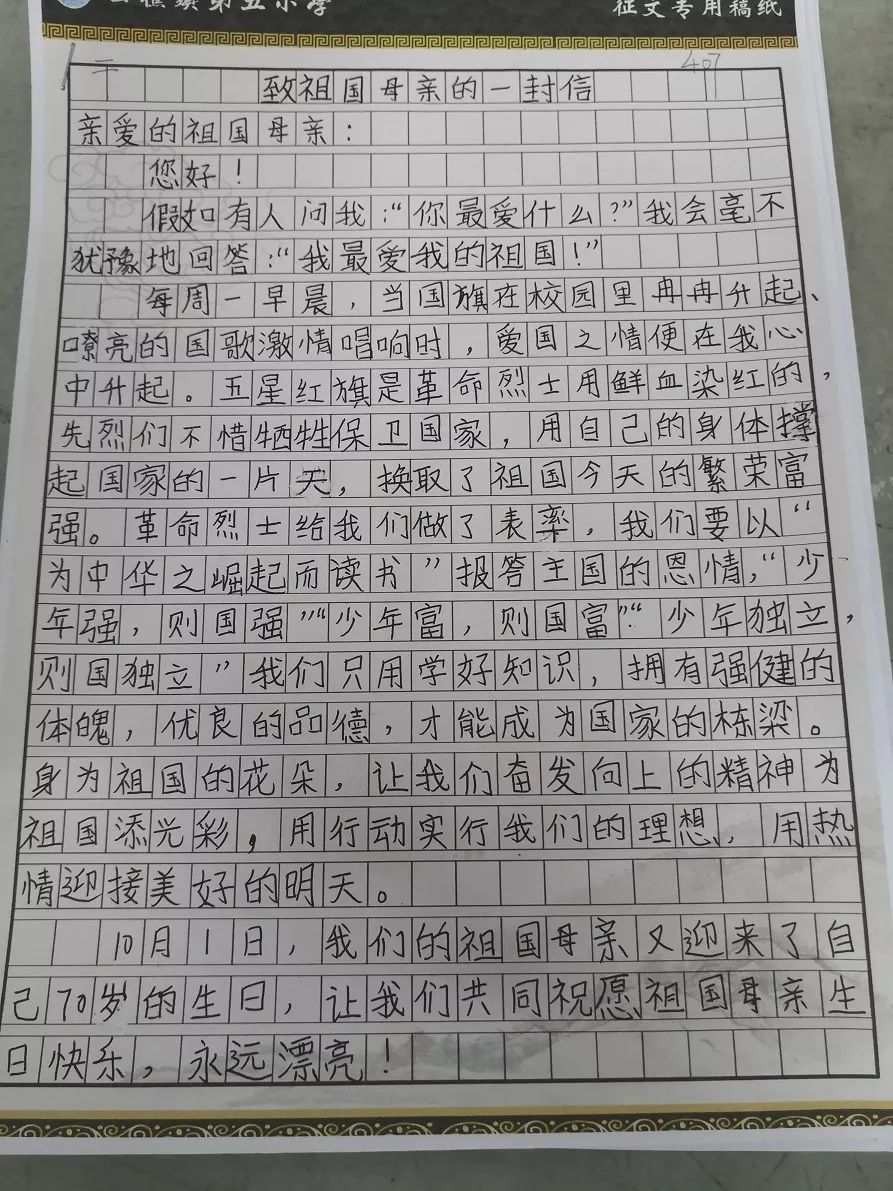 镇第五小学 征文专用稿纸
407
致祖国母亲的一封信
亲爱的祖国母亲：
您好！
假如有人问我：“你最爱什么？”我会毫不
犹豫地回答：“我最爱我的祖国！”
每周一早晨，当国旗在校园里冉冉升起、
嘹亮的国歌激情唱响时，爱国之情便在我心
中升起。五星红旗是革命烈士用鲜血染红的，
先烈们不惜牺牲保卫国家，用自己的身体撑
起国家的一片天，换取了祖国今天的繁荣富
强。革命烈士给我们做了表率，我们要以“
为中华之崛起而读书”报答主国的恩情，“少
年强，则国强”“少年富，则国富”“少年独立，
则国独立”我们只用学好知识，拥有强健的
体魄，优良的品德，才能成为国家的栋梁。
身为祖国的花朵，让我们奋发向上的精神为
祖国添光彩，用行动实行我们的理想，用热
情迎接美好的明天。
10月1日，我们的祖国母亲又迎来了自
己70岁的生日，让我们共同祝愿祖国母亲生
日快乐，永远漂亮！